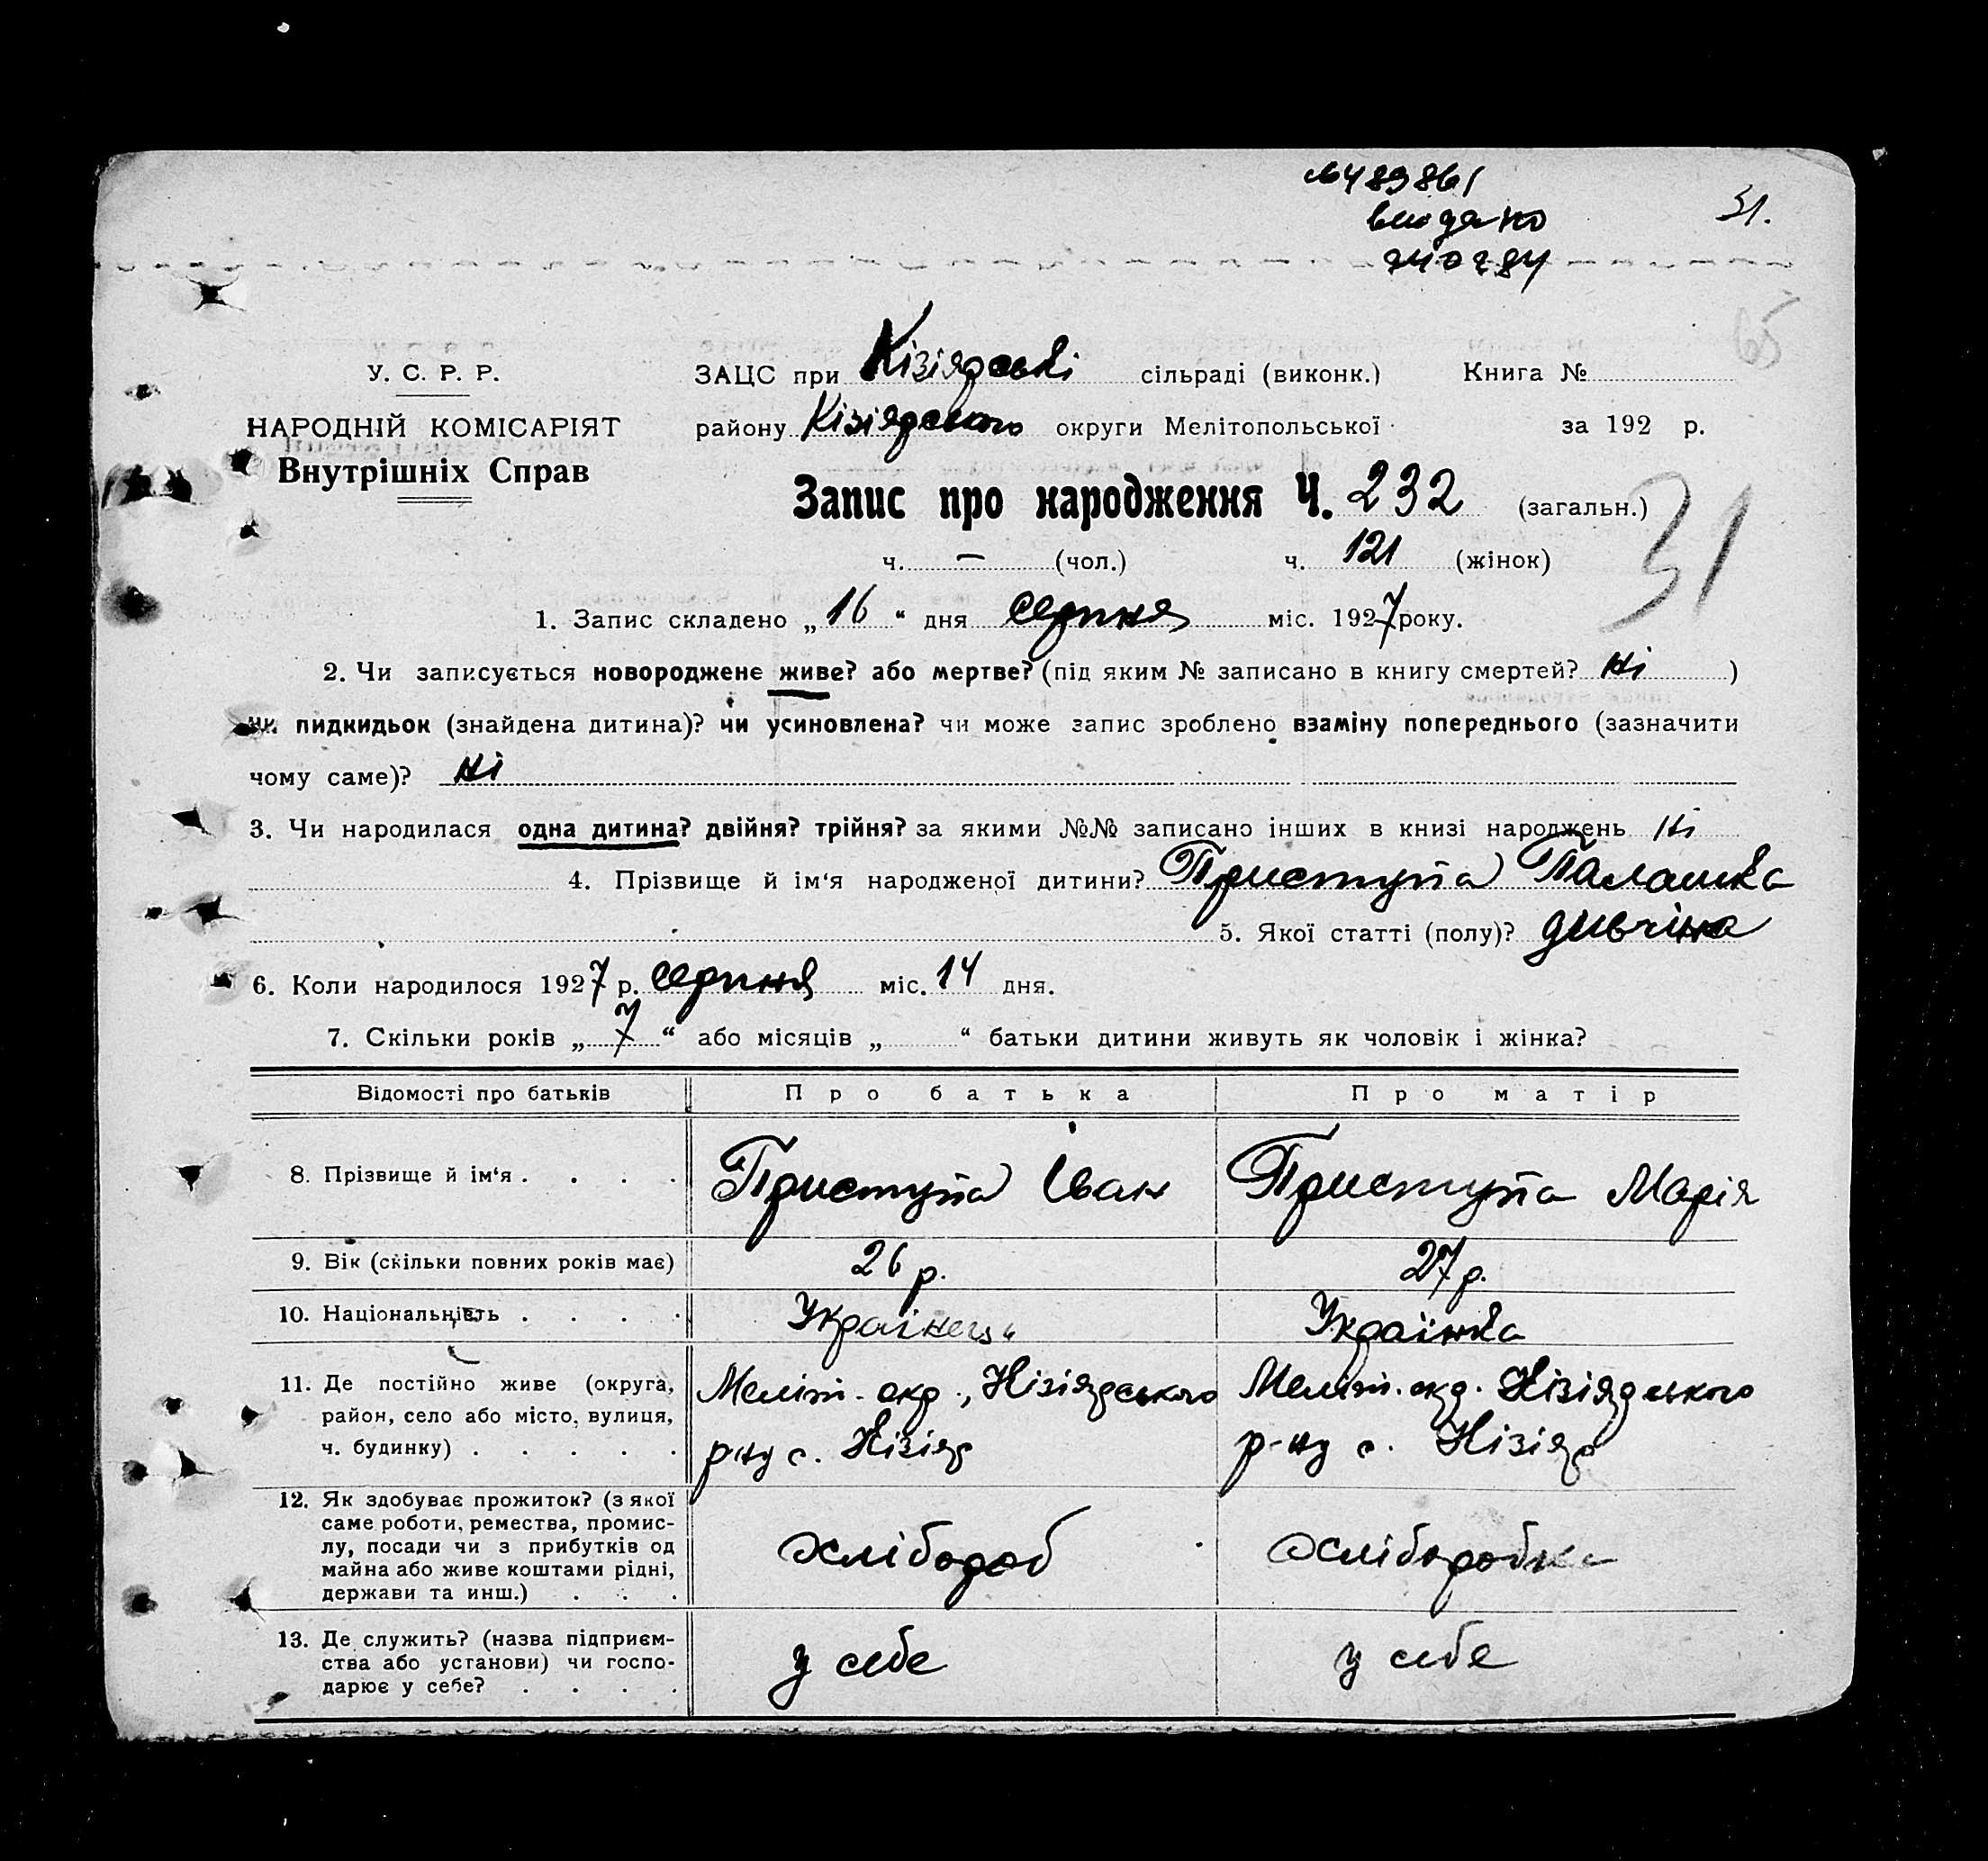 31.
видано
65
У. С. Р. Р.
НАРОДНІЙ КОМІСАРІЯТ
Внутрішніх Справ
ЗАЦС при Кізіярські сільраді (виконк.) Книга №
району Кізіярського округи Мелітопольської за 192 р.
Запис про народження Ч. 232 (загальн.)
31
ч. — (чол.) ч. 121 (жінок)
1. Запис складено „ 16 “ дня серпня міс. 1927 року.
2. Чи записується новороджене живе? або мертве? (під яким № записано в книгу смертей? ні )
чи пидкидьок (знайдена дитина)? чи усиновлена? чи може запис зроблено взаміну попереднього (зазначити
чому саме)? ні
3. Чи народилася одна дитина? двійня? трійня? за якими №№ записано інших в книзі народжень ні
4. Прізвище й ім‘я народженої дитини? Приступа Палашка
5. Якої статті (полу)? дивчіна
6. Коли народилося 1927 р. серпня міс. 14 дня.
7. Скільки років „ 7 “ або місяців „ “ батьки дитини живуть як чоловік і жінка?
Відомості про батьків Про батька Про матір
8. Прізвище й ім‘я . . . . Приступа Іван Приступа Марія
9. Вік (скільки повних років має) 26 р. 27 р.
10. Національність . . . . Українець Українка
11. Де постійно живе (округа,
район, село або місто, вулиця,
ч. будинку) . . . . .
Меліт. окр., Кізіярського
р-ну с. Кізіяр
Меліт. окр. Кізіярського
р-ну с. Кізіяр
12. Як здобуває прожиток? (з якої
саме роботи, ремества, промис-
лу, посади чи з прибутків од
майна або живе коштами рідні,
держави та инш.) . . .
хлібороб
хліборобка
13. Де служить? (назва підприєм-
ства або установи) чи госпо-
дарює у себе? . . . .
у себе
у себе